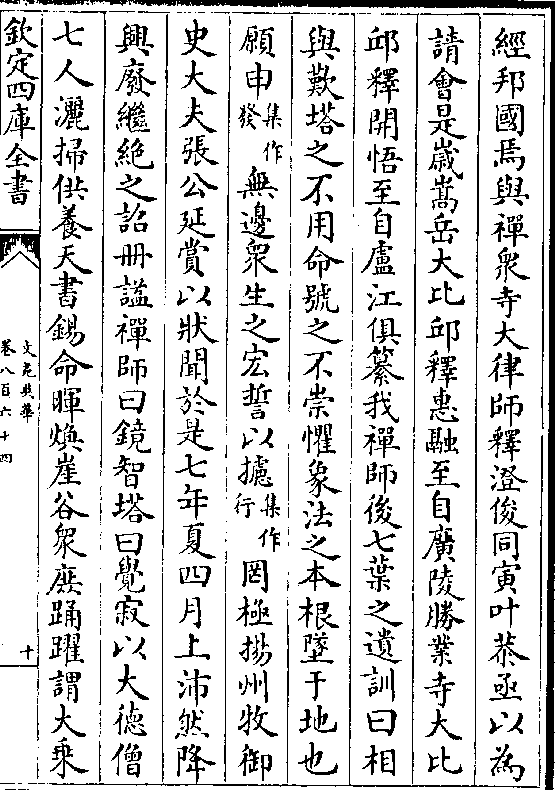 經邦國焉與禪衆寺大律師釋澄俊同寅叶恭亟以為
請會是歳嵩岳大比邱釋惠融至自廣陵勝業寺大比
邱釋開悟至自廬江俱纂我禪師後七葉之遺訓曰相
與歎塔之不用命號之不崇懼象法之本根墜于地也
願申集作發無邊衆生之宏誓以攄集作行罔極揚州牧御
史大夫張公延賞以狀聞於是七年夏四月上沛然降
興廢繼絶之詔冊諡禪師曰鏡智塔曰覺寂以大德僧
七人灑掃供養天書錫命暉煥崖谷衆庶踊躍謂大乗
欽定四庫全書
文苑英華
卷八百六十四
十